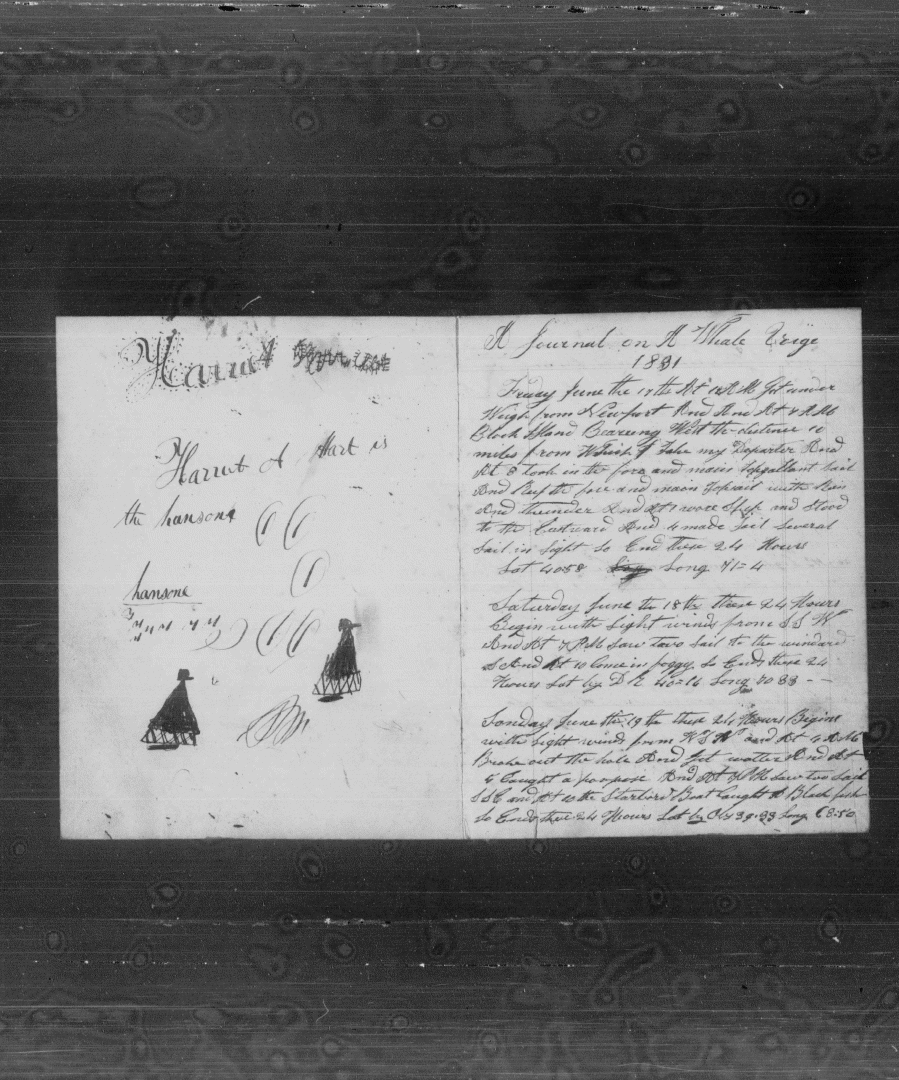 Harriet
Harriet A Hart is
the hansone
hansone
A Journal on A Whale Voige
1831
Friday June the 17th At 10 AM Got under
Weigh from Newport And And At 4 PM
Block Island Bearing West the distence 10
miles from Which I Take my Departer And
At 8 took in the fore and main topgallant sail
And Reef the fore and main Topsail with Rain
And thunder And At 1 wore Ship and Stood
to the Eastward And 4 made sail Several
Sail in Sight So End these 24 Hours
Lat 40=58 Long 71=4
Saturday June the 18th these 24 Hours
Begin with Light winds from S S W
And At 7 PM Saw tavo Sail to the windard
And At 10 Come in foggy So Ends these 24
Hours Lat by D R 40=14 Long 70 33 - -
Sonday June the 19 the these 24 Hours Begins
with Light winds from W S W and At 4 AM
Broke out the hole And Got watter And At
Caught a poopose And At 7 PM Saw two Sail
S S E and At 10 the Starbord Boat Caught A Black fish
So Ends these 24 Hours Lat by Obs 39=33 Long 68=50